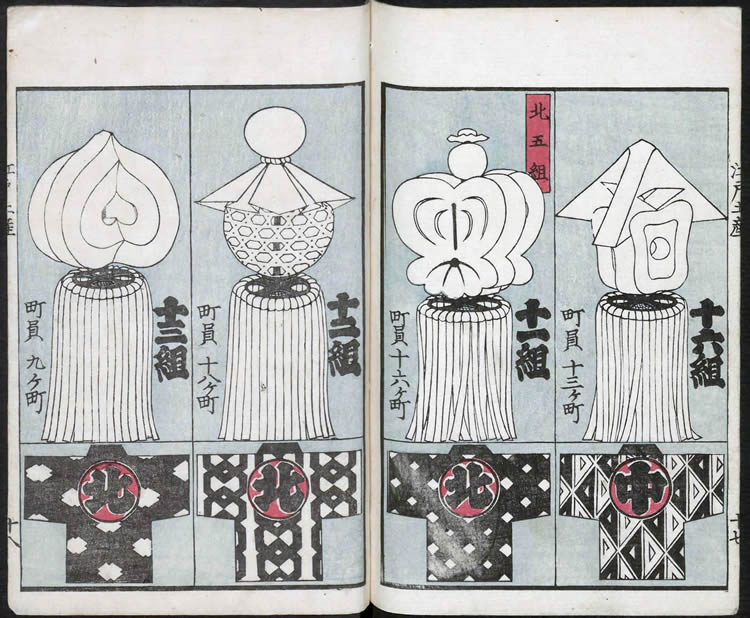 江戸土産
十六組
町員 十三ヶ町
中
十七
北五組
十一組
町員十六ヶ町
北
十二組
町員 十八ヶ町
北
十三組
町員 九ヶ町
北
江戸土産
十八